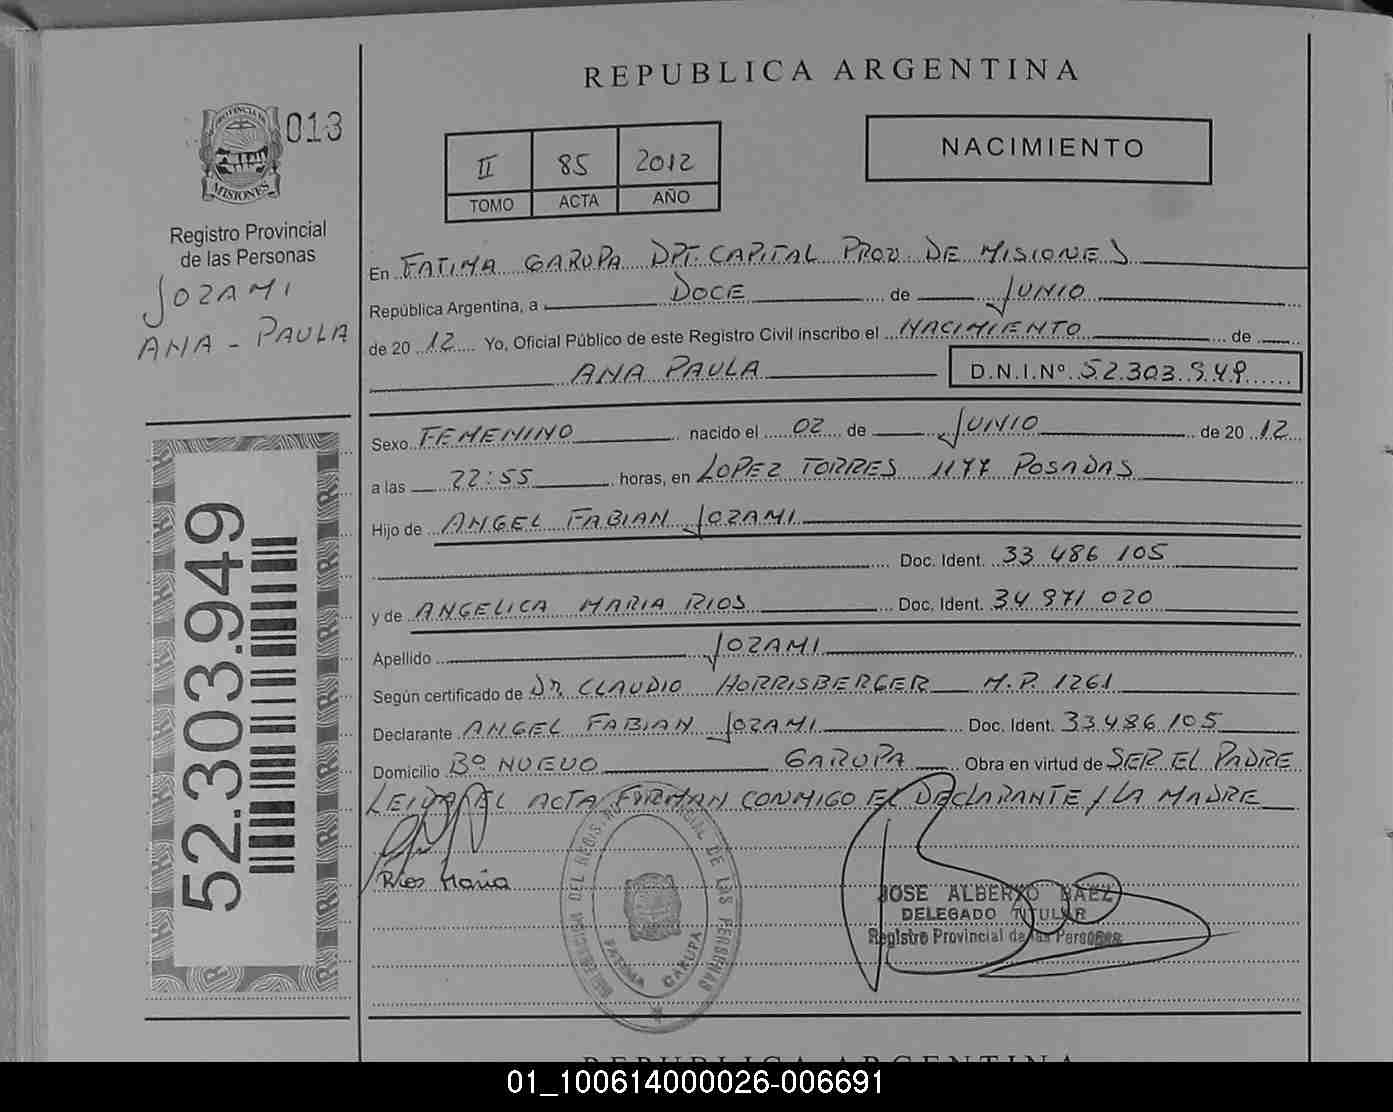 REPUBLICA ARGENTINA
PROVINCIA DE
MISIONES
013
Registro Provincial
de las Personas
JOZAMI
ANA - PAULA
II 85 2012
TOMO ACTA AÑO
NACIMIENTO
En FATIMA GARUPA DPT. CAPITAL PROV. DE MISIONES
República Argentina, a DOCE de JUNIO
de 20 12 Yo, Oficial Público de este Registro Civil inscribo el NACIMIENTO de
ANA PAULA D.N.I.Nº 52.303.949
Sexo FEMENINO nacido el 02 de JUNIO de 20 12
a las 22:55 horas, en LOPEZ TORRES 1177 POSADAS
Hijo de ANGEL FABIAN JOZAMI
Doc. Ident. 33 486 105
y de ANGELICA MARIA RIOS Doc. Ident. 34 971 020
Apellido JOZAMI
Según certificado de Dr. CLAUDIO HORRISBERGER M.P. 1261
Declarante ANGEL FABIAN JOZAMI Doc. Ident. 33 486 105
Domicilio Bº NUEVO GARUPA Obra en virtud de SER EL PADRE
LEIDA EL ACTA FIRMAN CONMIGO EL DECLARANTE / LA MADRE
Rios Maria
JOSE ALBERTO BAEZ
DELEGADO TITULAR
Registro Provincial de las Personas
DELEGACION DEL REGISTRO PROVINCIAL DE LAS PERSONAS
FATIMA GARUPA
52.303.949
REPUBLICA ARGENTINA
01_100614000026-006691